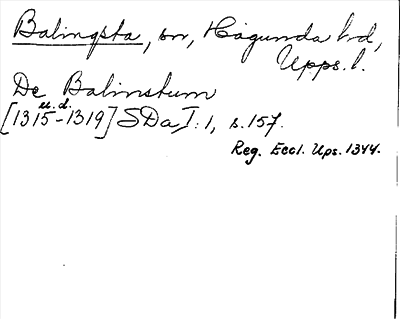 Balingsta, sn, Hagunda hd,
Upps. l.
De Balinstum
u. d.
[1315-1319] SDa I: 1, s. 157.
Reg. Eccl. Ups. 1344.